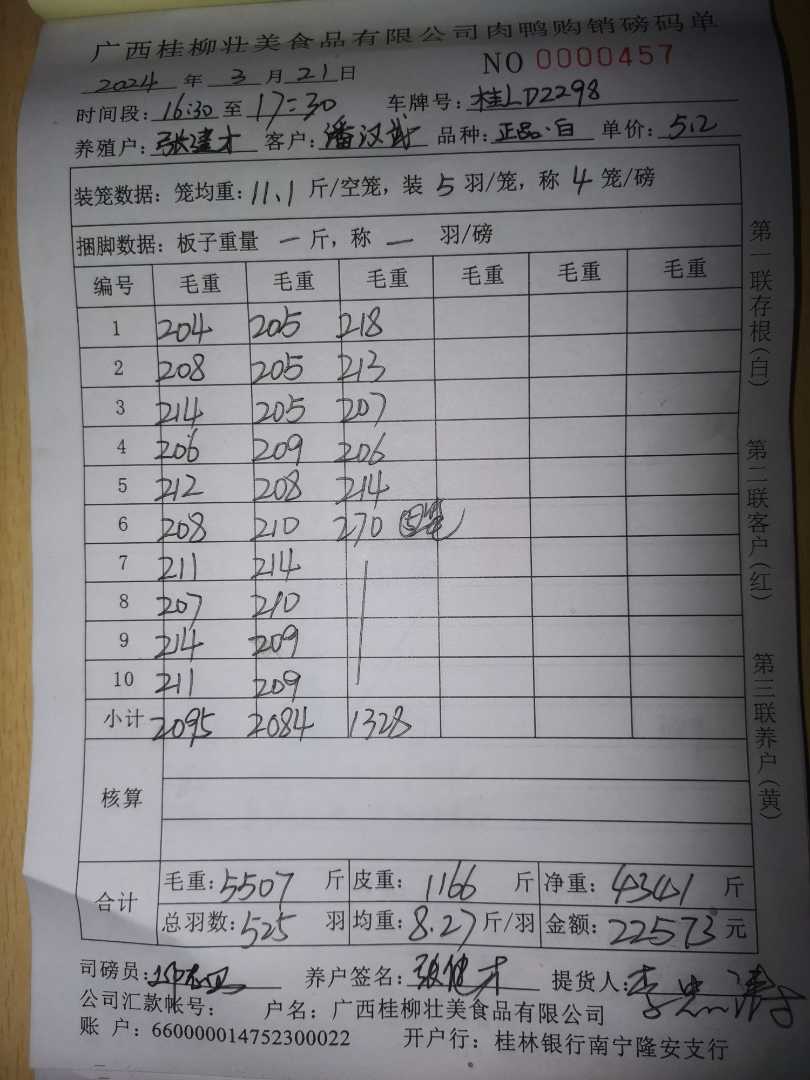 广西桂柳壮美食品有限公司肉鸭购销磅码单
2024 年 3 月 21 日 NO 0000457
时间段: 16:30 至 17:30 车牌号: 桂LD2298
养殖户: 张建才 客户: 潘汉武 品种: 正品·白 单价: 5.2
装笼数据: 笼均重: 11.1 斤/空笼，装 5 羽/笼，称 4 笼/磅
捆脚数据: 板子重量 一 斤，称 一 羽/磅
编号 毛重 毛重 毛重 毛重 毛重 毛重
1 204 205 218
2 208 205 213
3 214 205 207
4 206 209 206
5 212 208 214
6 208 210 270 笼
7 211 214
8 207 210
9 214 209
10 211 209
小计 2095 2084 1328
核算
合计
毛重: 5507 斤 皮重: 1166 斤 净重: 4341 斤
总羽数: 525 羽 均重: 8.27 斤/羽 金额: 22573 元
司磅员: 养户签名: 张健才 提货人: 李
公司汇款帐号: 户名: 广西桂柳壮美食品有限公司
账 户: 660000014752300022 开户行: 桂林银行南宁隆安支行
第一联存根(白)
第二联客户(红)
第三联养户(黄)